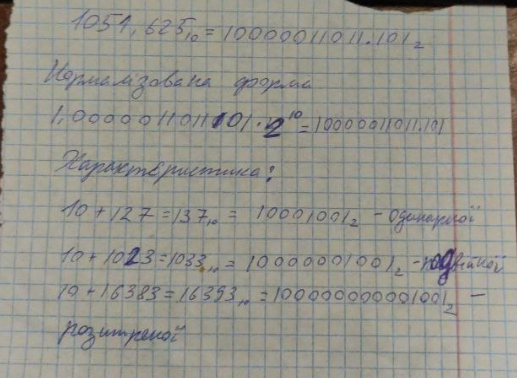 1051,625₁₀ = 10000011011.101₂
Нормалізована форма
1,0000011011101·2¹⁰ = 10000011011.101
Характеристика:
10 + 127 = 137₁₀ = 10001001₂ - одинарной
10 + 1023 = 1033₁₀ = 10000001001₂ - подвійной
10 + 16383 = 16393₁₀ = 100000000001001₂ -
розширеной